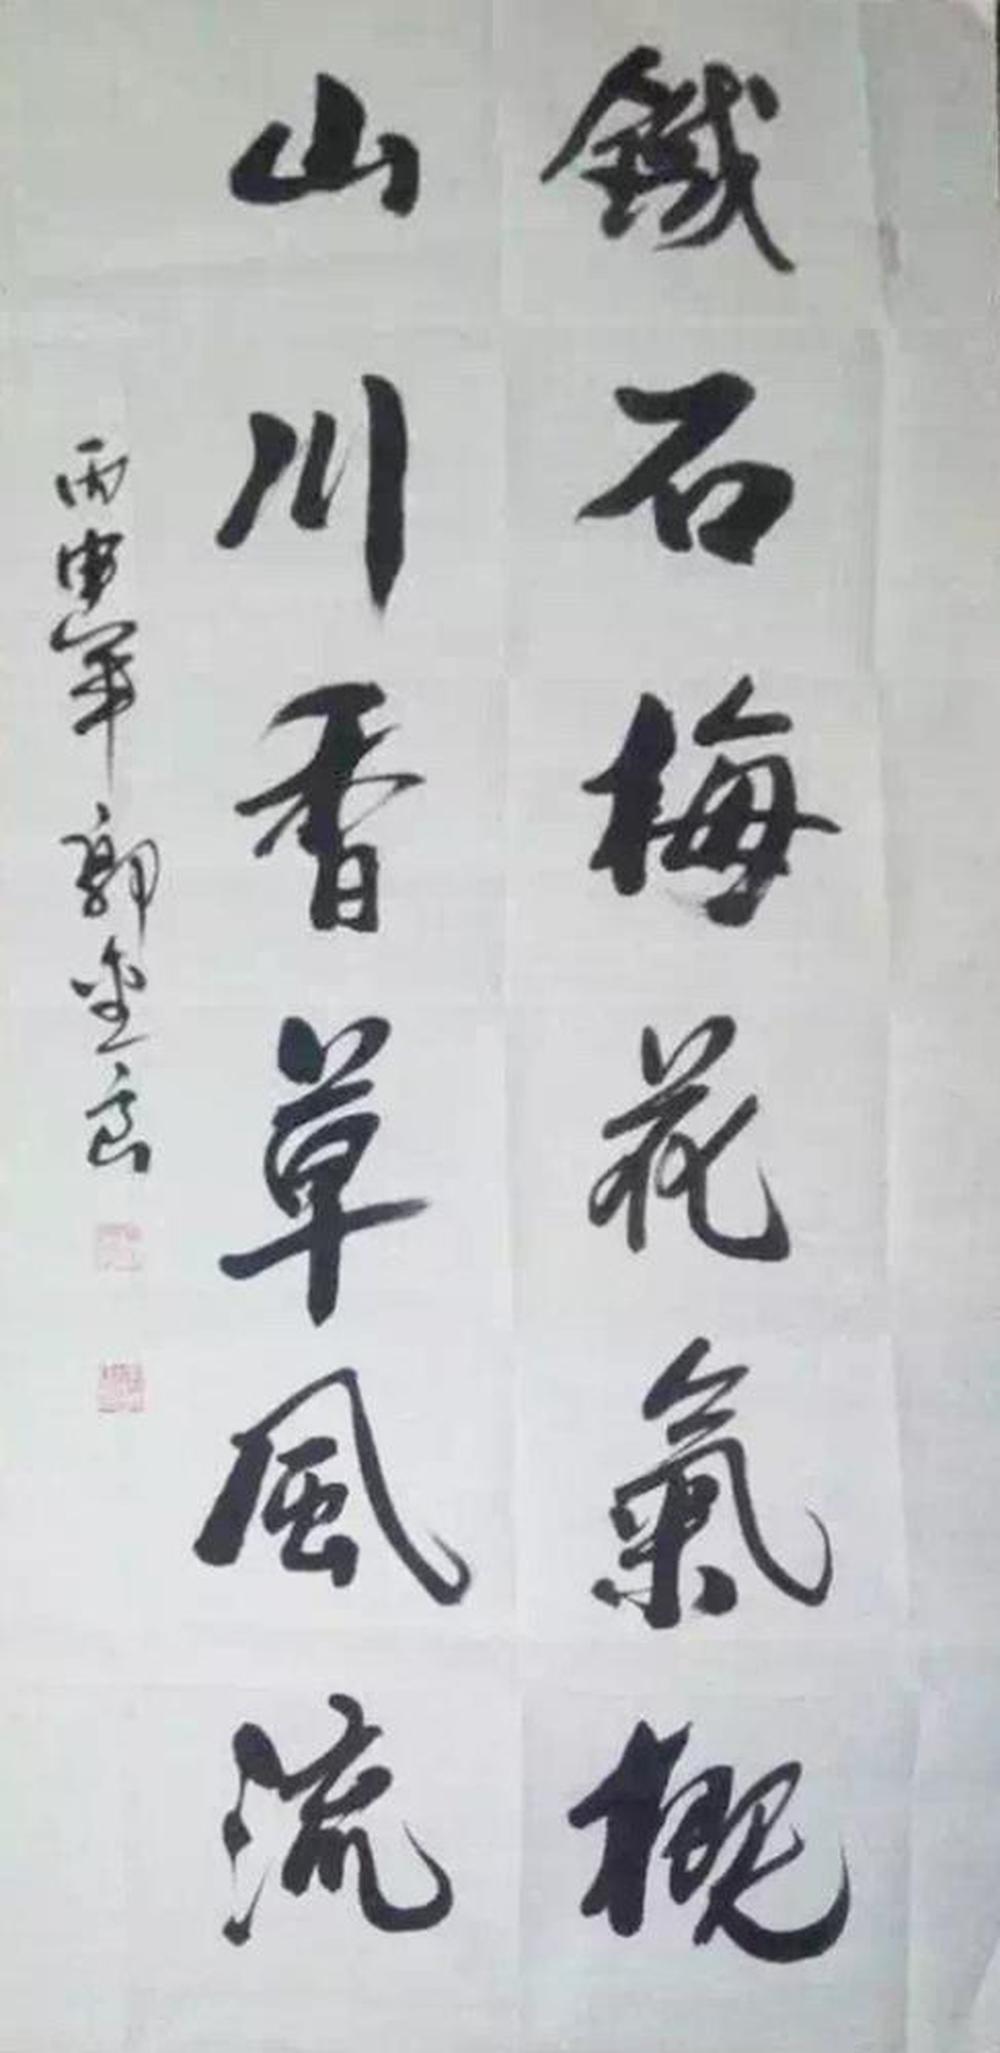 鐵石梅花氣概
山川香草風流
丙申年郭